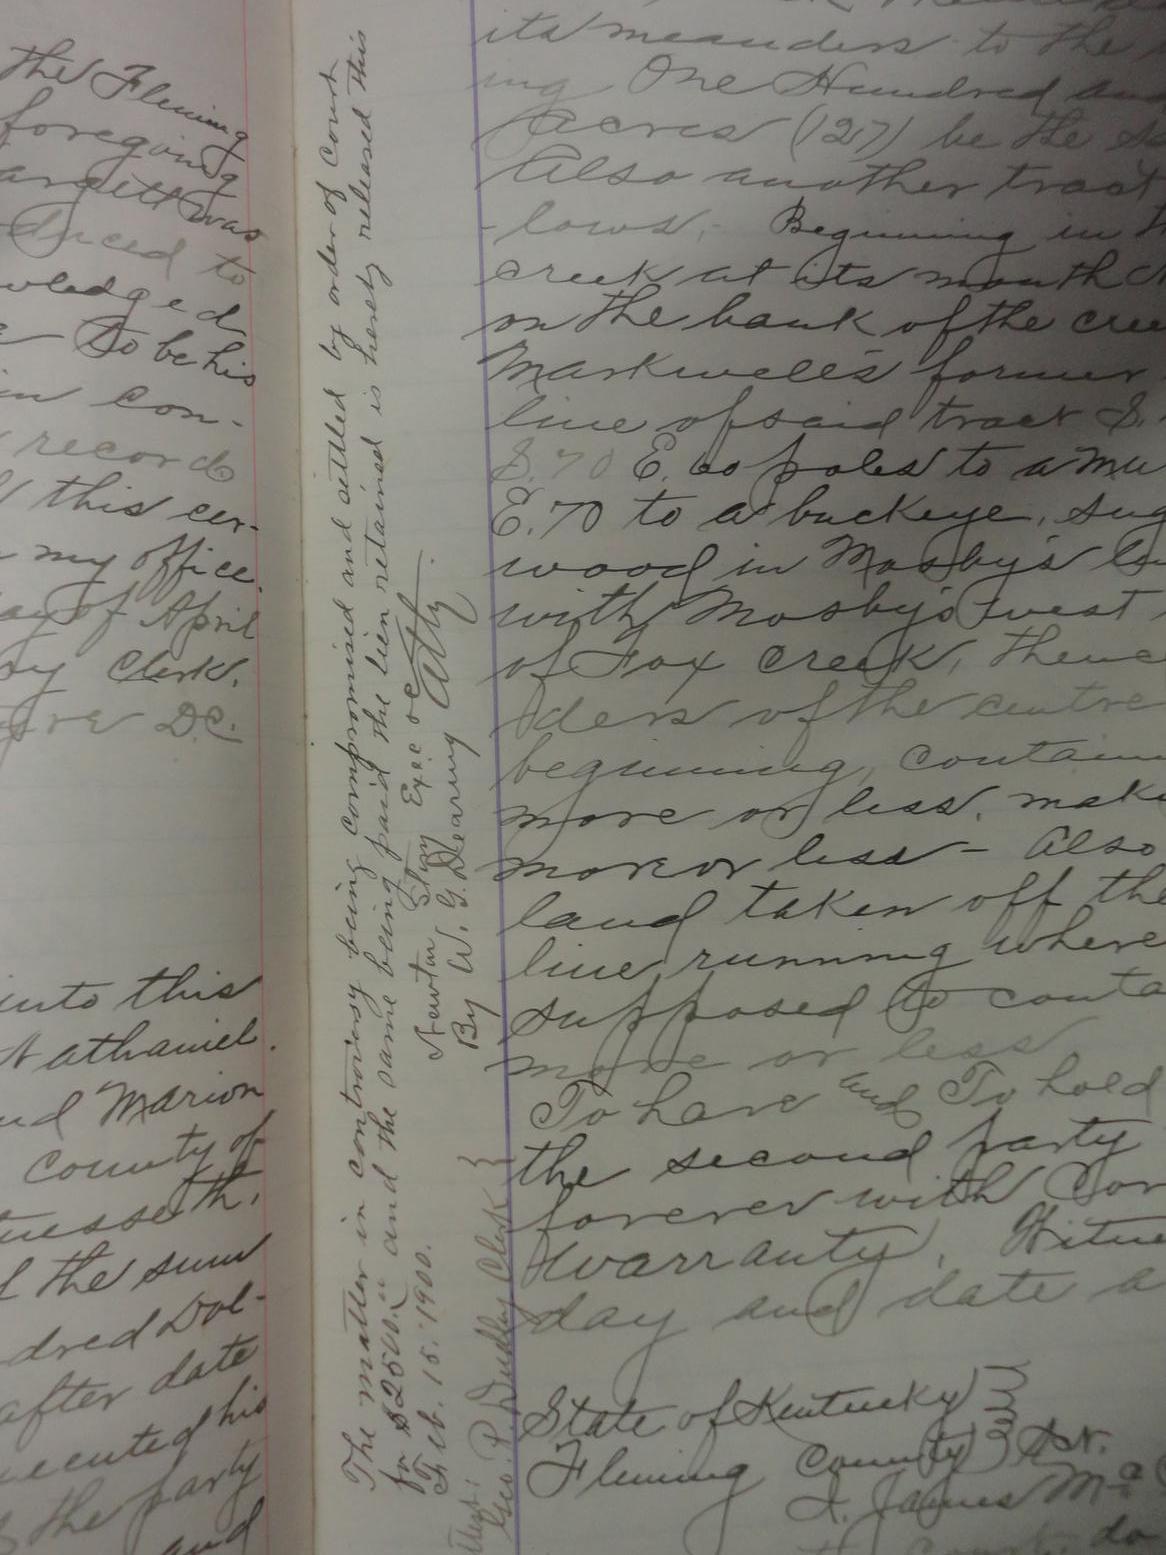 the Fleming
foregoing
was
duced to
wledged
to be his
in con-
record
this cer-
my office.
day of April
Clerk.
D.C.
into this
Nathaniel
nd Marion
County of
nesseth,
the sum
dred Dol-
after date
ecuted his
the party
and
The matter in controversy being compromised and settled by order of Court
for $2500.00 and the same being paid the lien retained is hereby released this
Feb. 15. 1900.
Newton Story Exec of
By W. G. Dearing Atty.
Attest:
Geo. P. Dudley Clerk }
its meanders to the
ing One Hundred and
Acres (127) be the sa
Also another tract
lows,- Beginning in
creek at its mouth
on the bank of the cree
Markwell's former
line of said tract S.
S. 70 E. 60 poles to a mu
E. 70 to a buckeye, sug
wood in Mosby's
with Mosby's west
of Fox Creek, thenc
ders of the centre
beginning, contain
more or less, maki
more or less - Also
land taken off the
line, running where
supposed to conta
more or less
To have and To hold
the second party
forever with
warranty. Witne
day and date a
State of Kentucky }
Fleming County } Sct.
I, James
do